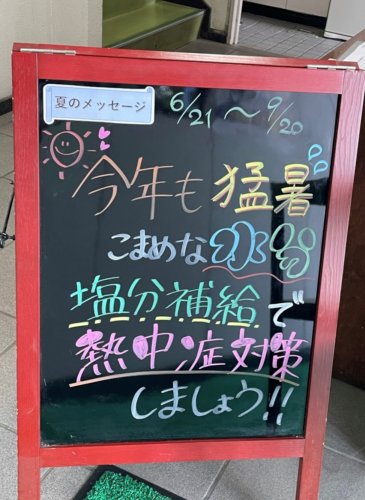 夏のメッセージ
6/21〜9/20
今年も猛暑
こまめな
塩分補給で
熱中症対策
しましょう!!